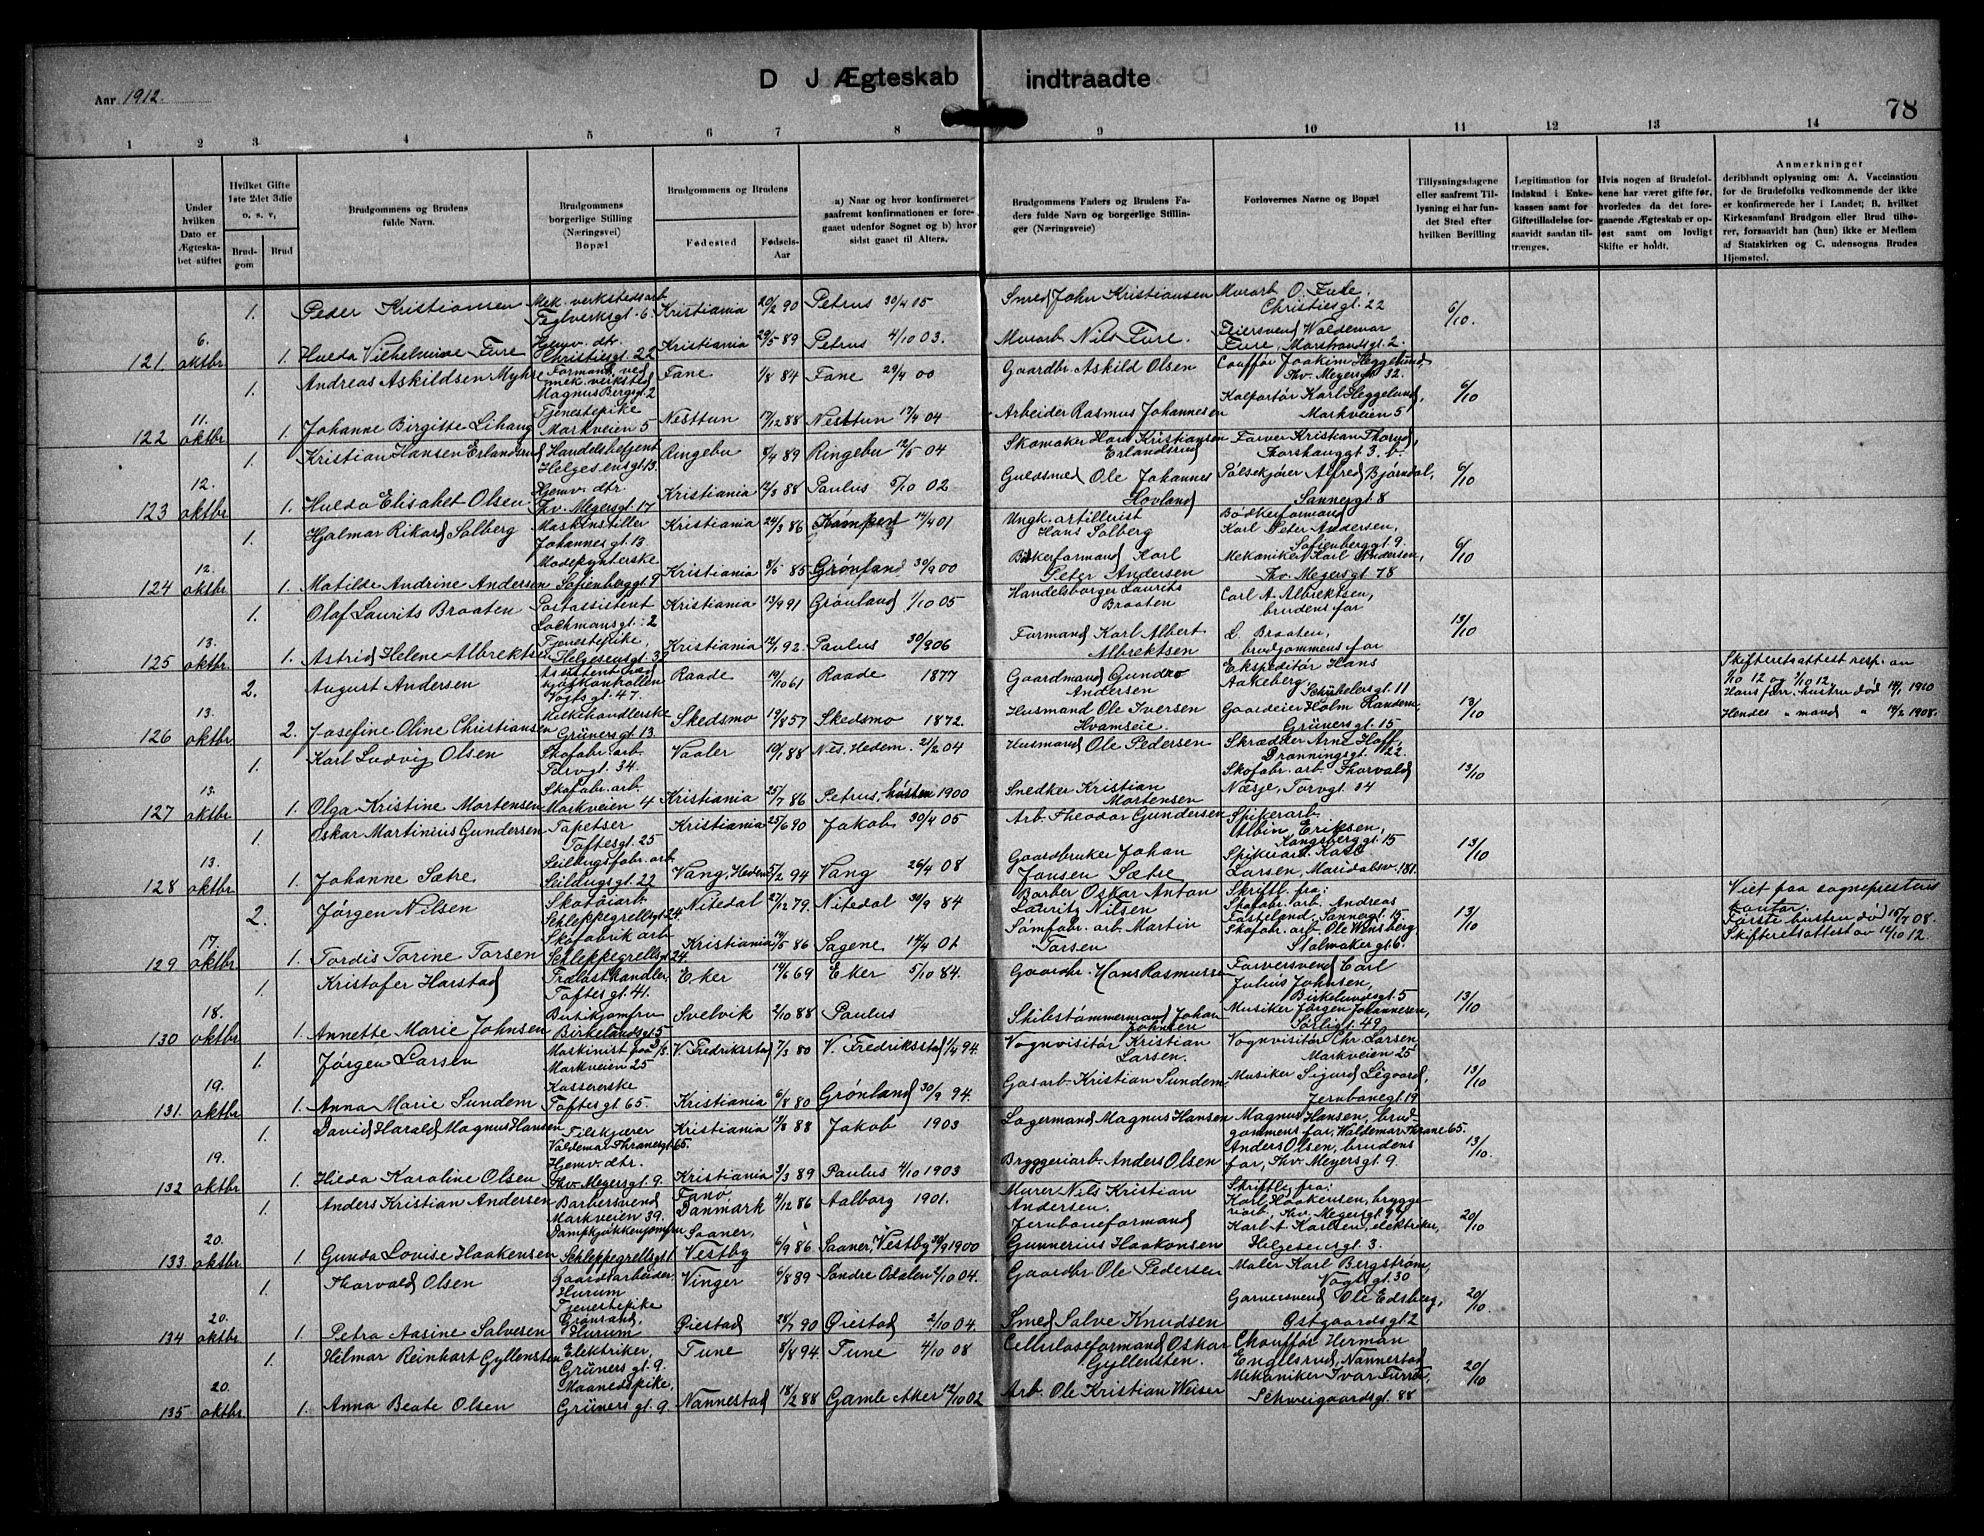 Aar 1912.
D J Ægteskab indtraadte
78
1 2 3 4 5 6 7 8 9 10 11 12 13 14
Under hvilken Dato er Ægteskabet stiftet
Hvilket Gifte 1ste 2det 3die o. s. v,
Brudgom
Brud
Brudgommens og Brudens fulde Navn.
Brudgommens borgerlige Stilling (Næringsvei) Bopæl
Brudgommens og Brudens
Fødested
Fødsels-Aar
a) Naar og hvor konfirmeret saafremt konfirmationen er foregaaet udenfor Sognet og b) hvor sidst gaaet til Alters.
Brudgommens Faders og Brudens Faders fulde Navn og borgerlige Stillinger (Næringsveie)
Forlovernes Navne og Bopæl
Tillysningsdagene eller saafremt Tillysning ei har fundet Sted efter hvilken Bevilling
Legitimation for Indskud i Enkekassen samt for Giftetilladelse forsaavidt saadan tiltrænges.
Hvis nogen af Brudefolkene har været gifte før, hvorledes da det foregaaende Ægteskab er opløst samt om lovligt Skifte er holdt.
Anmerkninger
deriblandt oplysning om: A. Vaccination for de Brudefolks vedkommende der ikke er konfirmerede her i Landet; B. hvilket Kirkesamfund Brudgom eller Brud tilhører, forsaavidt han (hun) ikke er Medlem af Statskirken og C. udensogns Brudes Hjemsted.
1. Peder Kristiansen Mek. verkstedsarb. Teglverksgt. 6 Kristiania 20/2 90 Petrus 30/4 05 Smed John Kristiansen Murarb. O. Fure Christiesgt. 22 6/10.
121. 6. oktbr. 1. Hulda Vilhelmine Fure Hjemv. dtr. Christiesgt. 22 Kristiania 29/5 89 Petrus 4/10 03. Murarb. Nils Fure. Feiersvend Waldemar Fure, Marstrandsgt. 2.
1. Andreas Askildsen Myhre Formand ved mek. verksted Magnus Bergsgt. 2 Fane 1/8 84 Fane 29/4 00 Gaardbr. Askild Olsen Couffør Joakim Heggelund, Thv. Meyersgt 32. 6/10
122 11. oktbr. 1. Johanne Birgitte Lihaug Tjenestepike Markveien 5 Nesttun 17/12 88 Nesttun 17/4 04 Arbeider Rasmus Johannesen Kolportør Karl Heggelund, Markveien 5
1. Kristian Hansen Erlandsrud Handelsbetjent Helgesensgt. 13. Ringebu 8/4 89 Ringebu 12/5 04 Skomaker Hans Kristiansen Erlandsrud Farver Kristian Thoryd Thorshauggt 3. b. 6/10
123 12. oktbr. 1. Hulda Elisabet Olsen Hjemv. dtr. Thv. Meyersgt. 17 Kristiania 12/3 88 Paulus 5/10 02 Guldsmed Ole Johannes Hovland Pølsekjører Alfred Bjørndal, Sannergt. 8
1. Hjalmar Rikard Solberg Maskinstiller Johannesgt. 13. Kristiania 24/3 86 Kampen 14/4 01 Ungk. artillerist Hans Solberg Bødkerformand Karl Peter Andersen, Sofienberggt. 9. 6/10
124 12. oktbr. 1. Matilde Andrine Andersen Modepynterske Sofienberggt. 9 Kristiania 3/5 85 Grønland 30/9 00 Bøkerformand Karl Peter Andersen Mekaniker Karl Andersen, Thv. Meyersgt. 78
1. Olaf Laurits Braaten Postassistent Lochmansgt. 2 Kristiania 13/9 91 Grønland 1/10 05 Handelsborger Laurits Braaten Carl A. Albrektsen, brudens far 13/10
125 13. oktbr. 1. Astrid Helene Albrektsen Tjenestepike, Helgesensgt. 32 Kristiania 12/1 92 Paulus 30/9 06 Formand Karl Albert Albrektsen L. Braaten, brudgommens far
2. August Andersen Assistent ved kjøtkontrollen Vogtsgt. 47. Raade 19/10 61 Raade 1877 Gaardmand Gundro Andersen Ekspeditør Hans Aakeberg, Schübelersgt. 11 13/10 Skifteretsattest resp. av 7/10 12 og 3/10 12. Hans førr. hustru død 14/1 1910
126 13. oktbr. 2. Josefine Oline Christiansen Melkehandlerske Grünersgt. 13 Skedsmo 19/8 57 Skedsmo 1872. Husmand Ole Iversen Hvamseie. Gaardeier Holm Randem, Grünersgt. 15 Hendes " mand " 14/2 1908.
1. Karl Ludvig Olsen Skofabr. arb. Torvgt. 34. Vaaler 10/1 88 Nes. Hedem. 21/2 04 Husmand Ole Pedersen Skrædder Arne Hoff, Dronningsgt. 22. 13/10
127 13. oktbr. 1. Olga Kristine Mortensen Skofabr. arb. Markveien 4 Kristiania 25/7 86 Petrus, høsten 1900 Snedker Kristian Mortensen Skofabr. arb. Thorvald Næsje, Torvgt. 34
1. Oskar Martinius Gundersen Tapetser Toftesgt. 25 Kristiania 25/6 90 Jakob 30/4 05 Arb. Theodor Gundersen Spikerarb. Albin Eriksen, Kongsberggt. 15 13/10
128 13. oktbr. 1. Johanne Sætre Seildugsfabr. arb. Seildugsgt. 22 Vang, Hedem. 5/2 94 Vang 26/4 08 Gaardbruker Johan Jansen Sætre Spikerarb. Karl Larsen, Maridalsv. 181.
2. Jørgen Nilsen Skotøiarb. Schleppegrellsgt 24. Nitedal 27/12 79. Nitedal 30/9 84 Barber Oskar Anton Lauritz Nilsen Skriftl. fra: Skofabr. arb. Andreas Fasteland, Sannergt. 15 13/10 Viet paa sogneprestens kontor. Første hustru død 15/7 08.
129 17. oktbr. 1. Tordis Torine Torsen Skofabrik arb. Schleppegrellsgt. 24. Kristiania 14/5 86 Sagene 14/4 01 Sømfabr. arb. Martin Torsen Skofabr. arb Ole Wensberg Stolmakergt. 6 Skifteretsattest av 12/10 12.
1. Kristofer Harstad Trælasthandler, Toftesgt. 41. Eker 14/6 69 Eker 5/10 84. Gaardbr. Hans Rasmussen Farversvend Carl Julius Johnsen, Birkelundsgt. 5 13/10
130 18. oktbr. 1. Annette Marie Johnsen Butikjomfru Birkelundsgt 5 Svelvik 2/10 88 Paulus Skibstømmermand Johan Johnsen Musiker Jørgen Johannesen, Sørligt. 49
1. Jørgen Larsen Maskinist paa D/S. Markveien 25 V. Fredriksstad 7/3 80 V. Fredriksstad 1/4 94. Vognvisitør Kristian Larsen. Vognvisitør Chr. Larsen, Markveien 25 13/10
131. 19. oktbr. 1. Anna Marie Sundem Kassererske Toftesgt. 65. Kristiania 6/8 80 Grønland 30/9 94. Gasarb. Kristian Sundem Musiker Sigurd Ligaard, Jernbanegt. 19
1. David Harald Magnus Hansen Filekjører Valdemar Thranesgt. 65. Kristiania 12/3 88 Jakob 1903 Lagermand Magnus Hansen Magnus Hansen, brudgommens far, Waldemar Thrane 65. 13/10.
132 19. oktbr. 1. Hilda Karoline Olsen Hjemv. dtr. Thv. Meyersgt. 9. Kristiania 3/3 89 Paulus 4/10 1903 Bryggeriarb. Anders Olsen Anders Olsen, brudens far, Thv. Meyersgt. 9.
1. Anders Kristian Andersen Barbersvend Markveien 39. Fanø, Danmark 4/12 86 Aalborg 1901. Murer Nils Kristian Andersen. Skriftlg. fra: Karl Haakensen, bryggeriarb., Thv. Meyersgt. 97 20/10
133. 20. oktbr. 1. Gunda Louise Haakensen Dampkjøkkenjomfru Schleppegrellsgt 1 Saaner, Vestby 6/9 86. Saaner, Vestby 30/9 1900 Jernbaneformand Gunnerius Haakonsen Karl A. Karlsen, elektriker, Helgesensgt. 3.
1. Thorvald Olsen Gaardsarbeider, Hurum Vinger 6/8 89 Søndre Odalen 2/10 04. Gaardbr Ole Pedersen Maler Karl Bergstrøm, Vogtsgt. 30 20/10.
134 20. oktbr. 1. Petra Aasine Salvesen Tjenestepike Grønsand, Hurum Øiestad 28/7 90 Øiestad 2/10 04. Smed Salve Knudsen Garversvend Ole Edsberg, Østgaardsgt 2
1. Hilmar Reinhart Gyllensten Elektriker, Grüners gt. 9. Tune 8/8 94. Tune 4/10 08 Celluloseformand Oskar Gyllensten. Chouffør Herman Engelsrud, Nannestad 20/10
135 20. oktbr. 1. Anna Beate Olsen Maanedspike, Grüners gt. 9 Nannestad 18/2 88 Gamle Aker 12/10 02 Arb. Ole Kristian Weiser Mekaniker Ivar Furre, Schweigaardsgt. 88